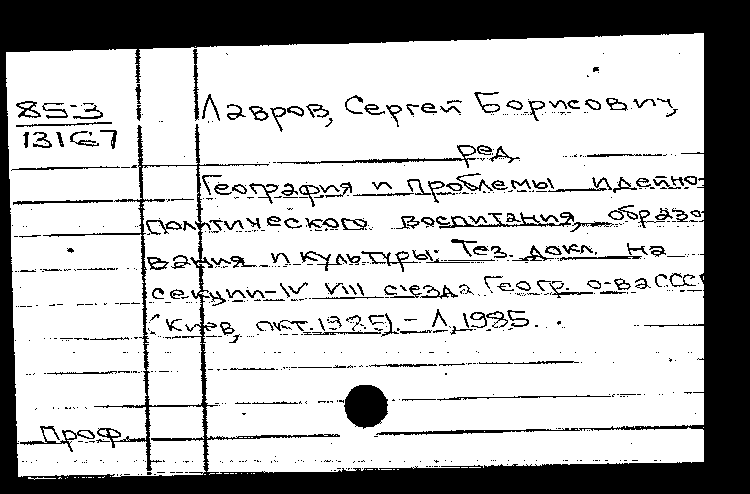 85-3
13167
Лавров, Сергей Борисович,
ред.
География и проблемы идейно-
политического воспитания, образо-
вания и культуры: Тез. докл. на
секции-IV VIII съезда Геогр. о-ва СССР
(Киев, окт. 1985). - Л, 1985.
Проф.